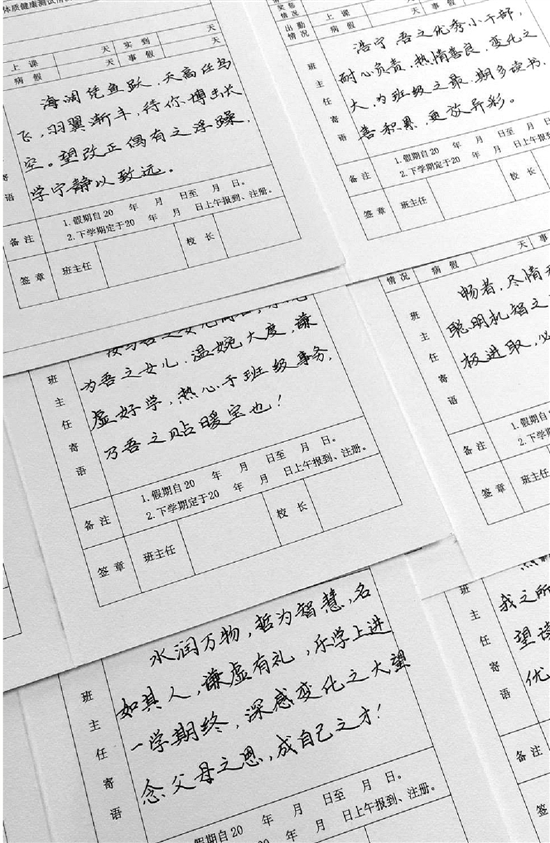 体质健康测试情况
上课 天 实到 天
病假 天 事假 天
海阔凭鱼跃，天高任鸟
飞，羽翼渐丰，待你博击长
空。望改正偶有之浮躁，
学宁静以致远。
寄
语
备注
1.假期自20 年 月 日至 月 日。
2.下学期定于20 年 月 日上午报到、注册。
签章 班主任 校长
奖惩
情况
出勤
情况
上课
病假
浩宁 吾之优秀小干部，
耐心负责，热情善良，变化之
大，为班级之最，期多读书，
善积累，更放异彩。
班
主
任
寄
语
备注
1.假期自20 年 月 日至 月 日。
2.下学期定于20 年 月 日上午报到、注册。
签章 班主任 校长
为吾之女儿，温婉大度，谦
虚好学，热心于班级事务，
乃吾之贴暖宝也！
班
主
任
寄
语
备注
1.假期自20 年 月 日至 月 日。
2.下学期定于20 年 月 日上午报到、注册。
签章 班主任 校长
情况 病假 天 事
畅者，尽情
聪明机智之
极进取，必
班
主
任
寄
语
备注
1.假期自20 年
2.下学期定于20
签章 班主任
水润万物，哲为智慧，名
如其人，谦虚有礼，乐学上进
一学期终，深感变化之大望
念父母之恩，成自己之才！
班
主
任
寄
语
1.假期自20 年 月 日至 月 日。
2.下学期定于20 年 月 日上午报到、注册。
我之所
望读
优
班
主
任
寄
语
备注